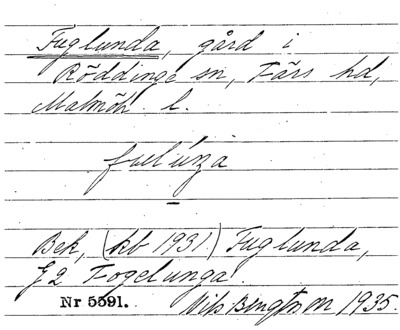 Fuglunda, gård i
Röddinge sn, Färs hd,
Malmöh. l.
fuĺuṅa
Bek. (kb 1931) Fuglunda,
J2 Fogelunga.
Nr 5591. Nils Bengtsson 1935.